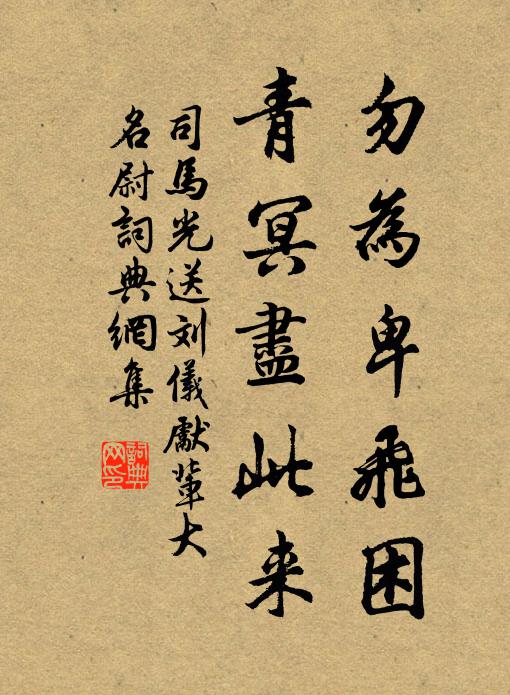 勿為卑飛困
青冥盡此来
司馬光送刘儀獻輩大
名尉詞典網集
詞典网印